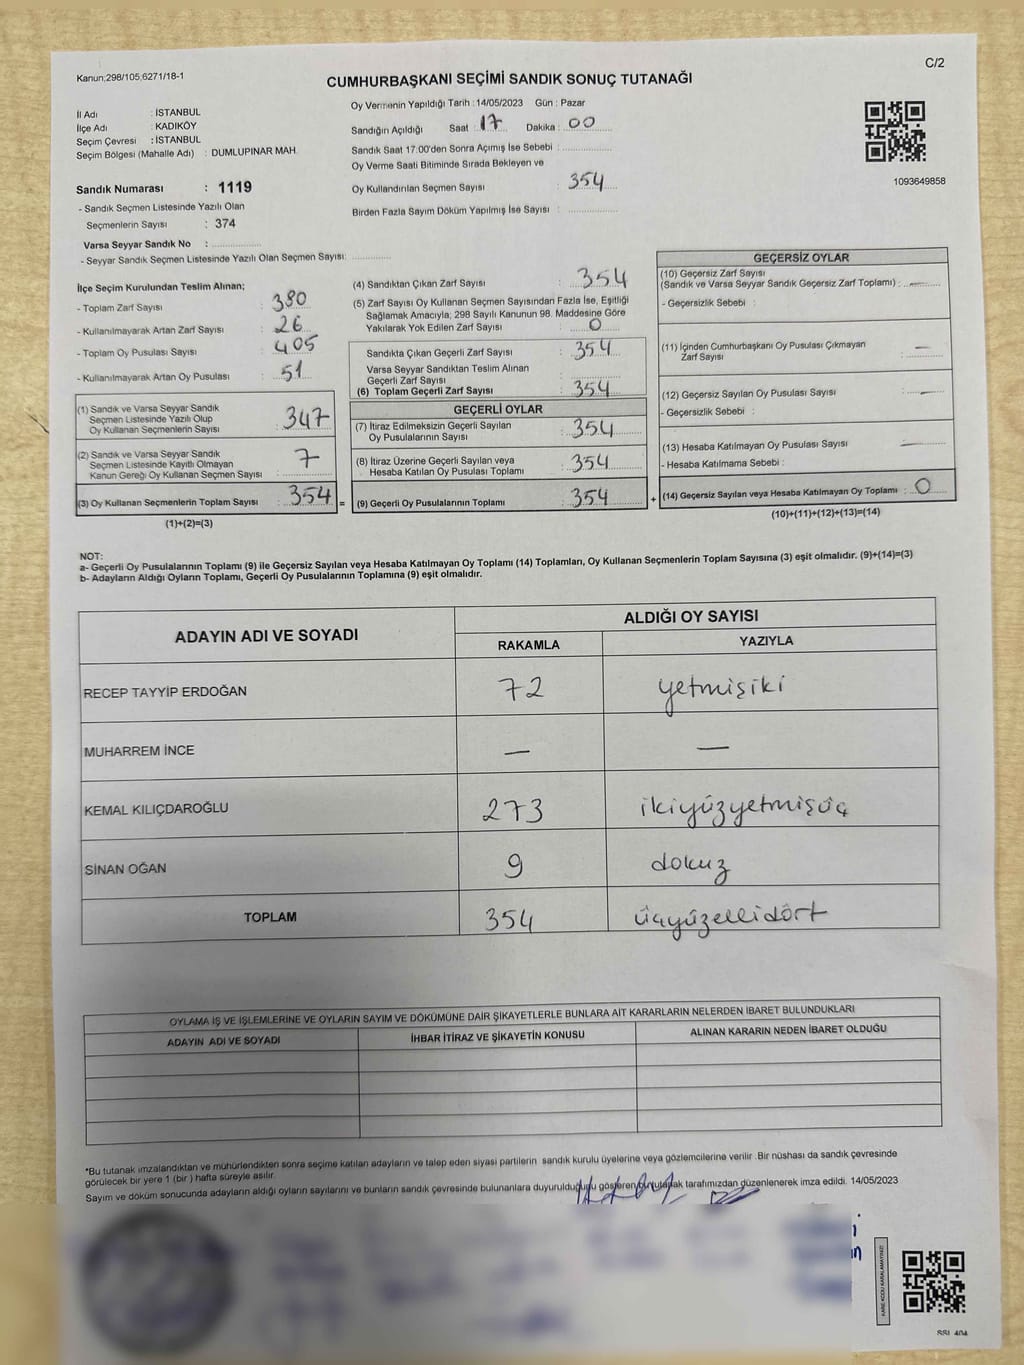 Kanun;298/105,6271/18-1
C/2
CUMHURBAŞKANI SEÇİMİ SANDIK SONUÇ TUTANAĞI
İl Adı : İSTANBUL
İlçe Adı : KADIKÖY
Seçim Çevresi : İSTANBUL
Seçim Bölgesi (Mahalle Adı) : DUMLUPINAR MAH.
Sandık Numarası : 1119
- Sandık Seçmen Listesinde Yazılı Olan
Seçmenlerin Sayısı : 374
Varsa Seyyar Sandık No :
- Seyyar Sandık Seçmen Listesinde Yazılı Olan Seçmen Sayısı:
Oy Vermenin Yapıldığı Tarih : 14/05/2023 Gün : Pazar
Sandığın Açıldığı Saat : 17 Dakika : 00
Sandık Saat 17:00'den Sonra Açımış İse Sebebi :
Oy Verme Saati Bitiminde Sırada Bekleyen ve
Oy Kullandırılan Seçmen Sayısı : 354
Birden Fazla Sayım Döküm Yapılmış İse Sayısı :
1093649858
İlçe Seçim Kurulundan Teslim Alınan;
- Toplam Zarf Sayısı : 380
- Kullanılmayarak Artan Zarf Sayısı : 26
- Toplam Oy Pusulası Sayısı : 405
- Kullanılmayarak Artan Oy Pusulası : 51
(1) Sandık ve Varsa Seyyar Sandık
Seçmen Listesinde Yazılı Olup
Oy Kullanan Seçmenlerin Sayısı : 347
(2) Sandık ve Varsa Seyyar Sandık
Seçmen Listesinde Kayıtlı Olmayan
Kanun Gereği Oy Kullanan Seçmen Sayısı : 7
(3) Oy Kullanan Seçmenlerin Toplam Sayısı : 354 =
(1)+(2)=(3)
(4) Sandıktan Çıkan Zarf Sayısı : 354
(5) Zarf Sayısı Oy Kullanan Seçmen Sayısından Fazla İse, Eşitliği
Sağlamak Amacıyla; 298 Sayılı Kanunun 98. Maddesine Göre
Yakılarak Yok Edilen Zarf Sayısı : 0
Sandıkta Çıkan Geçerli Zarf Sayısı : 354
Varsa Seyyar Sandıktan Teslim Alınan
Geçerli Zarf Sayısı :
(6) Toplam Geçerli Zarf Sayısı : 354
GEÇERLİ OYLAR
(7) İtiraz Edilmeksizin Geçerli Sayılan
Oy Pusulalarının Sayısı : 354
(8) İtiraz Üzerine Geçerli Sayılan veya
Hesaba Katılan Oy Pusulası Toplamı : 354
(9) Geçerli Oy Pusulalarının Toplamı : 354 +
GEÇERSİZ OYLAR
(10) Geçersiz Zarf Sayısı
(Sandık ve Varsa Seyyar Sandık Geçersiz Zarf Toplamı) : —
- Geçersizlik Sebebi :
(11) İçinden Cumhurbaşkanı Oy Pusulası Çıkmayan
Zarf Sayısı : —
(12) Geçersiz Sayılan Oy Pusulası Sayısı : —
- Geçersizlik Sebebi :
(13) Hesaba Katılmayan Oy Pusulası Sayısı : —
- Hesaba Katılmama Sebebi :
(14) Geçersiz Sayılan veya Hesaba Katılmayan Oy Toplamı : 0
(10)+(11)+(12)+(13)=(14)
NOT:
a- Geçerli Oy Pusulalarının Toplamı (9) ile Geçersiz Sayılan veya Hesaba Katılmayan Oy Toplamı (14) Toplamları, Oy Kullanan Seçmenlerin Toplam Sayısına (3) eşit olmalıdır. (9)+(14)=(3)
b- Adayların Aldığı Oyların Toplamı, Geçerli Oy Pusulalarının Toplamına (9) eşit olmalıdır.
ADAYIN ADI VE SOYADI
ALDIĞI OY SAYISI
RAKAMLA YAZIYLA
RECEP TAYYİP ERDOĞAN 72 yetmişiki
MUHARREM İNCE — —
KEMAL KILIÇDAROĞLU 273 ikiyüzyetmişüç
SİNAN OĞAN 9 dokuz
TOPLAM 354 üçyüzellidört
OYLAMA İŞ VE İŞLEMLERİNE VE OYLARIN SAYIM VE DÖKÜMÜNE DAİR ŞİKAYETLERLE BUNLARA AİT KARARLARIN NELERDEN İBARET BULUNDUKLARI
ADAYIN ADI VE SOYADI İHBAR İTİRAZ VE ŞİKAYETİN KONUSU ALINAN KARARIN NEDEN İBARET OLDUĞU
*Bu tutanak imzalandıktan ve mühürlendikten sonra seçime katılan adayların ve talep eden siyasi partilerin sandık kurulu üyelerine veya gözlemcilerine verilir. Bir nüshası da sandık çevresinde
görülecek bir yere 1 (bir) hafta süreyle asılır.
Sayım ve döküm sonucunda adayların aldığı oyların sayılarını ve bunların sandık çevresinde bulunanlara duyurulduğunu gösteren bu tutanak tarafımızdan düzenlenerek imza edildi. 14/05/2023